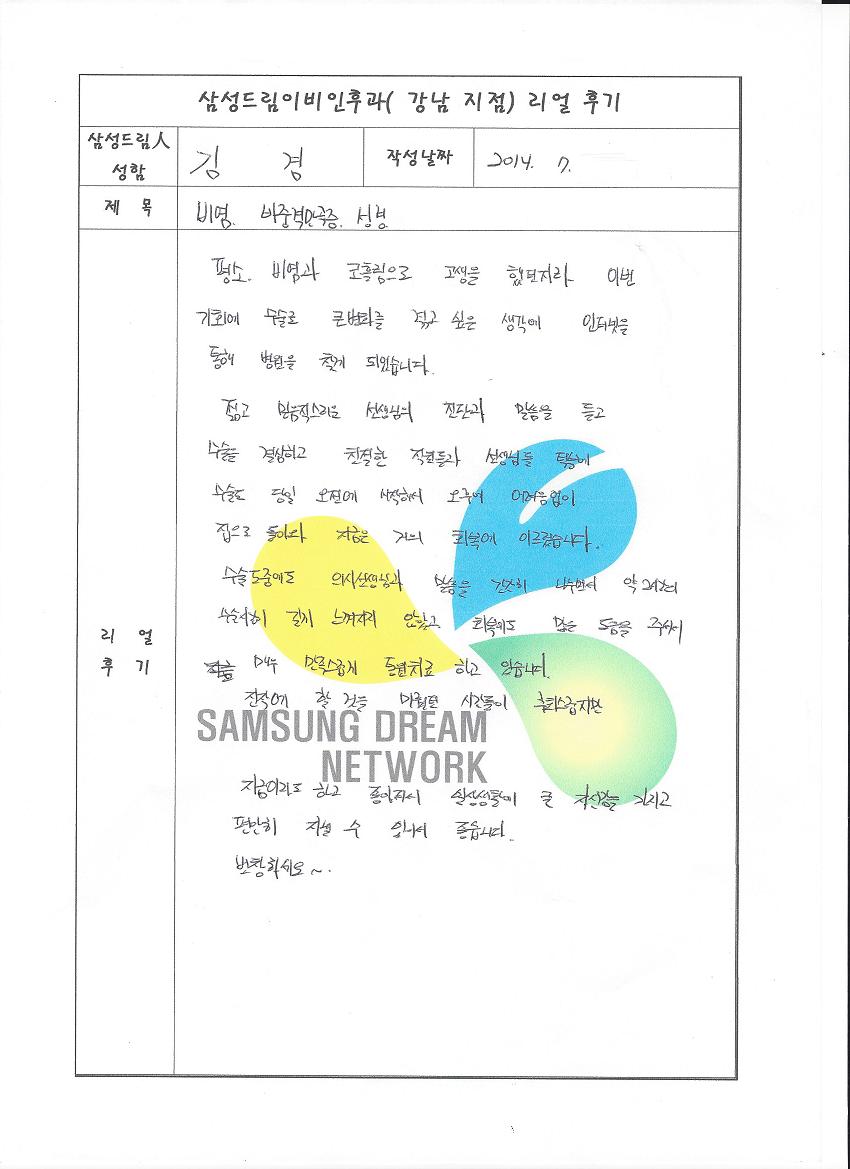 삼성드림이비인후과( 강남 지점) 리얼 후기
삼성드림人
성함
김 겸
작성날짜
2014. 7.
제 목
비염. 비중격만곡증. 성형
평소. 비염과 코흘림으로 고생을 했던지라 이번
기회에 수술로 큰변화를 겪고 싶은 생각에 인터넷을
통해 병원을 찾게 되었습니다.
젊고 믿음직스러운 선생님의 진단과 말씀을 듣고
수술을 결심하고 친절한 직원들과 선생님들 덕분에
수술도 당일 오전에 시작하여 오후에 어려움없이
집으로 돌아와 지금은 거의 회복에 이르렀습니다.
수술도중에도 의사선생님과 말씀을 간간히 나누면서 약
수술시간이 길게 느껴지지 않았고 회복에도 많은 도움을 주셔서
매우 만족스럽게 통원치료 하고 있습니다.
진작에 할 것을 미뤘던 시간들이 후회스럽지만
SAMSUNG DREAM
NETWORK
지금이라도 하고 좋아져서 실생활에 큰 자신감을 가지고
편안히 지낼 수 있어서 좋습니다.
번창하세요~.
리 얼
후 기